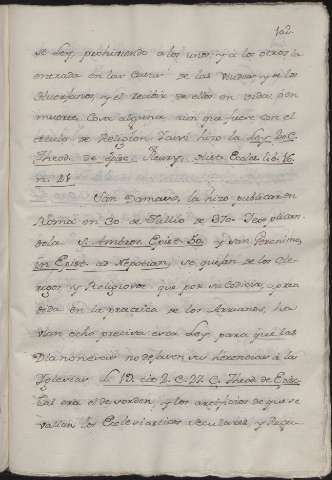 102.
se Ley, prohiviendo a los unos, y a los otros la
entrada en las Casas de las Viudas, y de los
Huerfanos, y el recivir de ellos en vida, ò en
muerte, Cosa alguna aun que fuese con el
titulo de Religion
Theod. de Epis. Fleury. Histo Eccles. lib. 16.
n. 21
San Damaso, la hizo publicar en
Roma en 30. de Jullio de 370.
S. Ambros. Epist. 50. y San Geronimo,
in Epist. ad Nepotian, se quejan de los Cle-
rigos, y Religiosos que por su codicia, apren-
dida en la practica de los Arrianos, ha-
vian echo precisa esta Ley para que las
no dejasen sus herencias à la
Yglesia. L. 19. cto 2. C. 27. C. Theod. de Episc.
tal era el desorden, y los artificios de que se
valian los Ecclesiasticos seculares, y Regu-